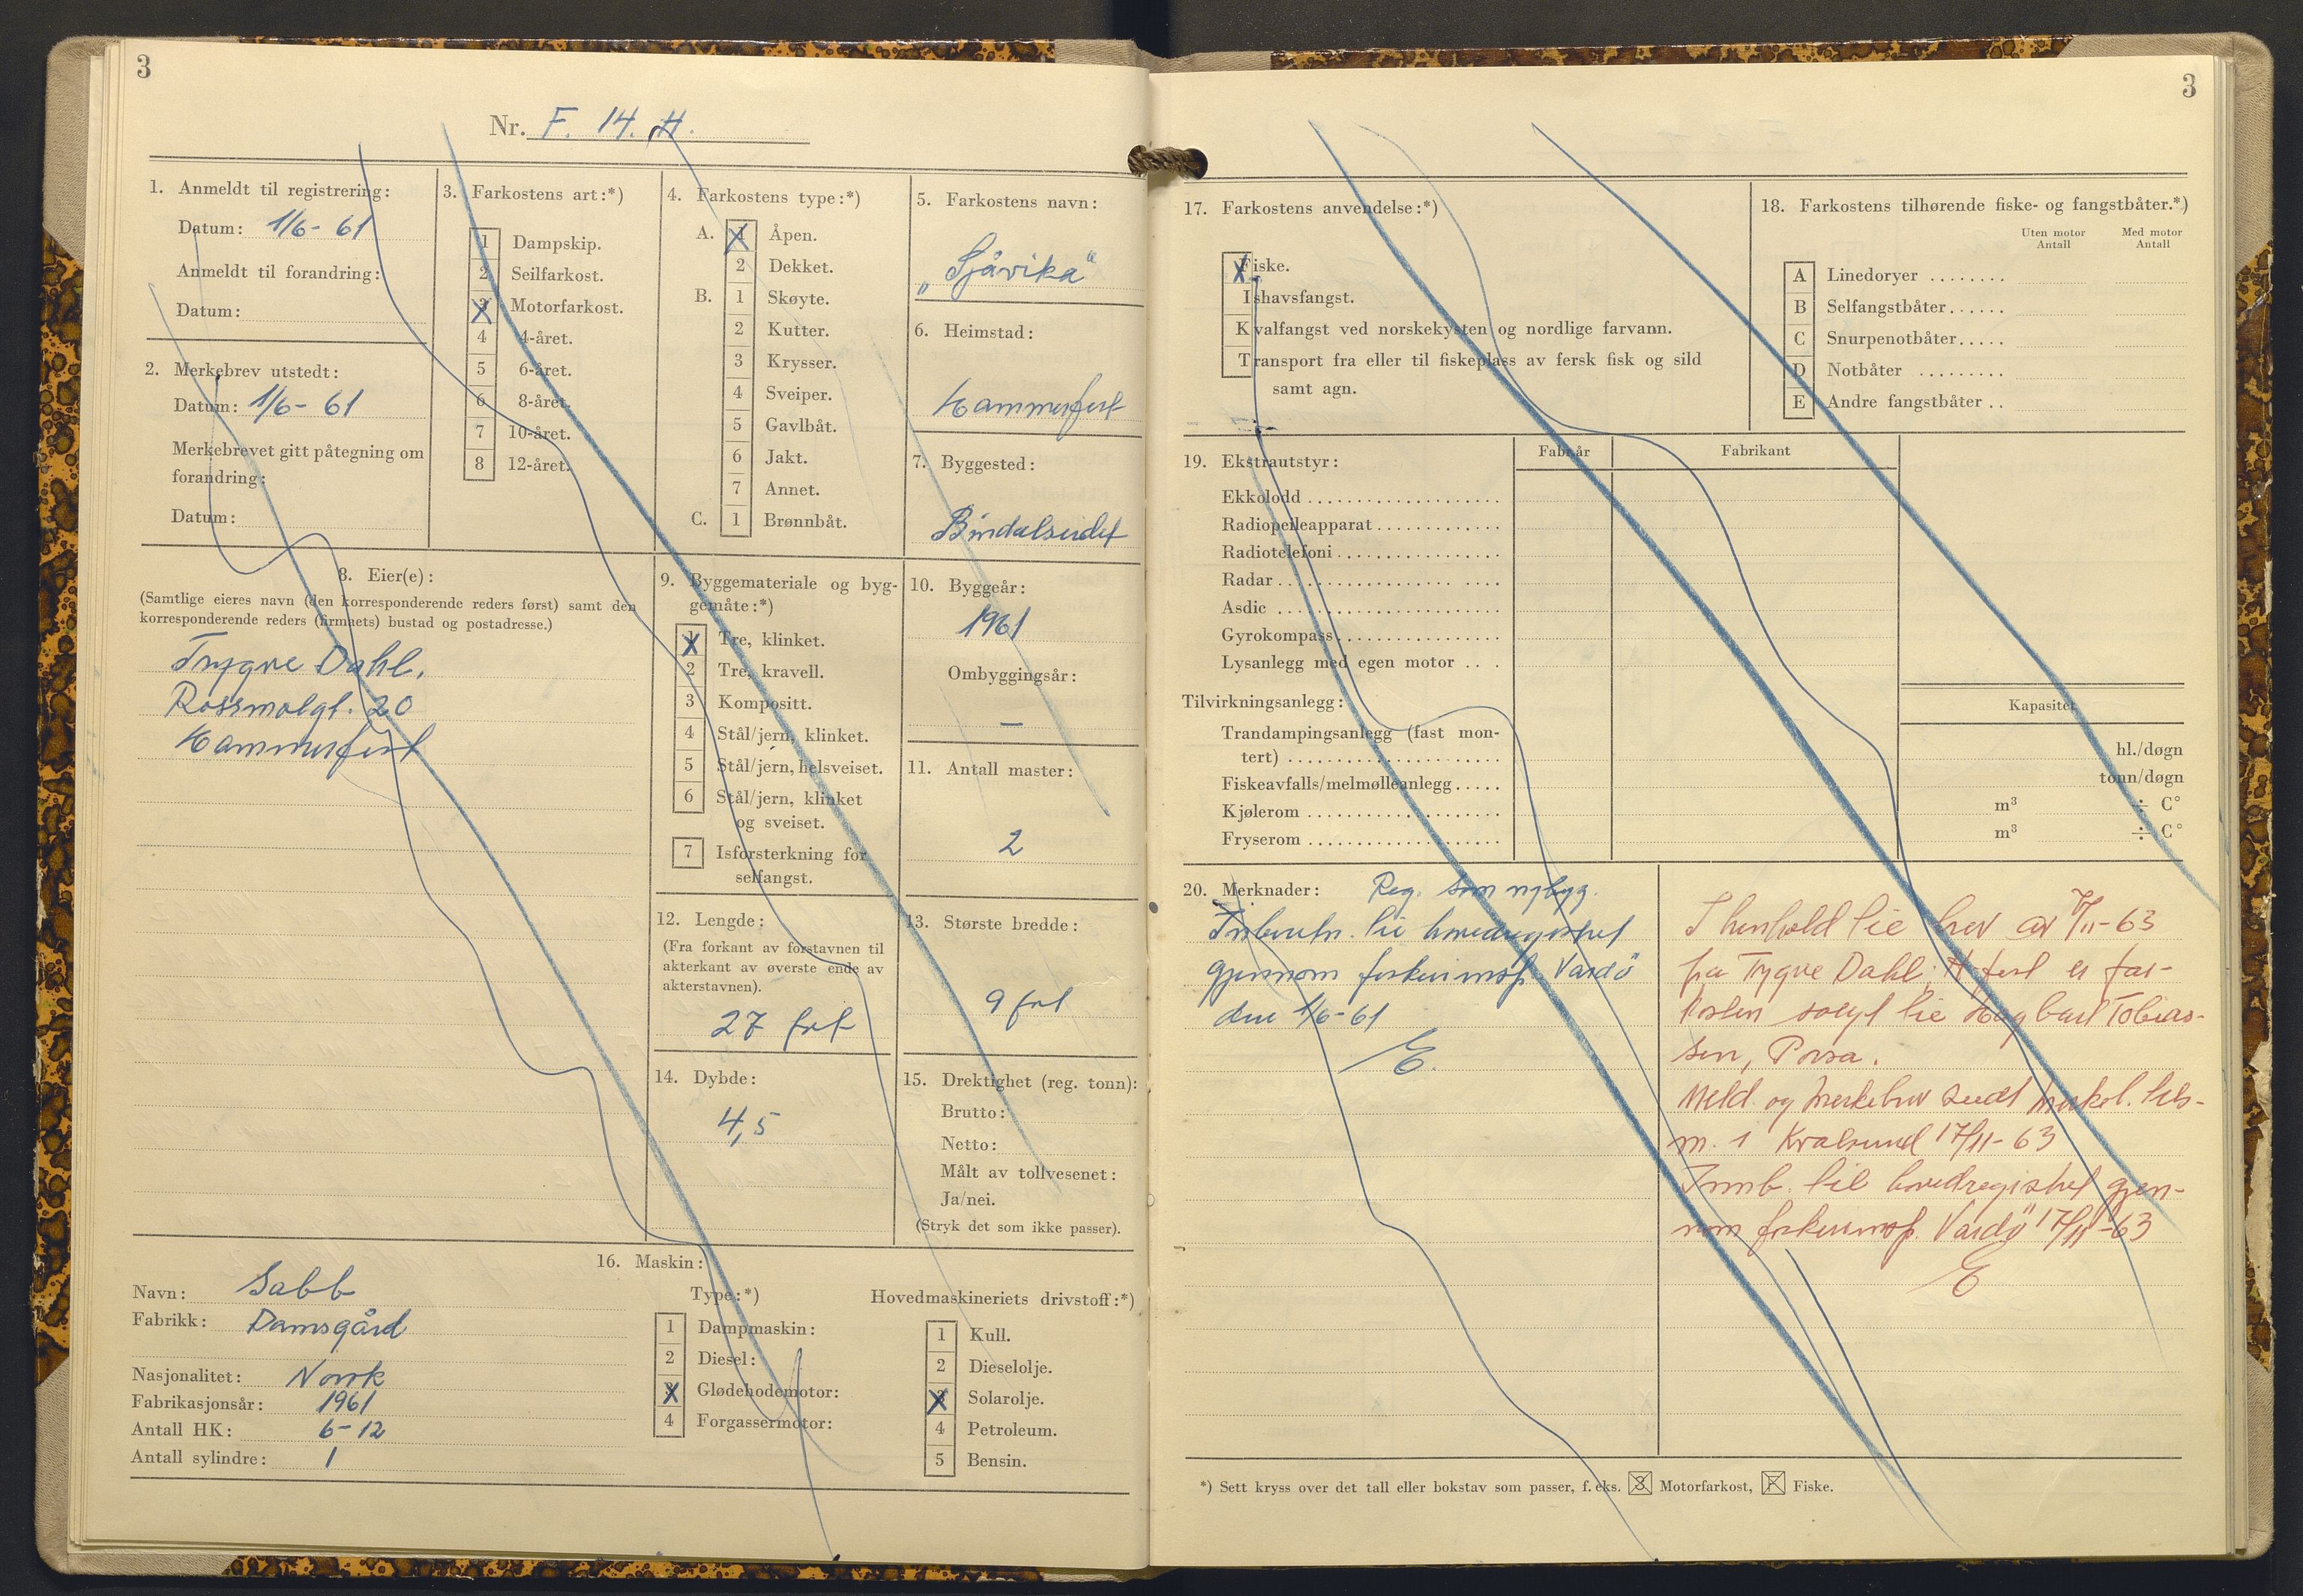 3
Nr. F. 14. H.
1. Anmeldt til registrering:
Datum: 1/6- 61
Anmeldt til forandring:
Datum:
2. Merkebrev utstedt:
Datum: 1/6- 61
Merkebrevet gitt påtegning om
forandring:
Datum:
3. Farkostens art:*)
1 Dampskip.
2 Seilfarkost.
3 Motorfarkost.
4 4-året.
5 6-året.
6 8-året.
7 10-året.
8 12-året.
4. Farkostens type:*)
A. 1 Åpen.
2 Dekket.
B. 1 Skøyte.
2 Kutter.
3 Krysser.
4 Sveiper.
5 Gavlbåt.
6 Jakt.
7 Annet.
C. 1 Brønnbåt.
5. Farkostens navn:
„Sjåvika"
6. Heimstad:
Hammerfest
7. Byggested:
Bindalseidet
8. Eier(e):
(Samtlige eieres navn (den korresponderende reders først) samt den
korresponderende reders (firmaets) bustad og postadresse.)
Trygve Dahl.
Rossmolgt. 20
Hammerfest
9. Byggemateriale og byg-
gemåte:*)
1 Tre, klinket.
2 Tre, kravell.
3 Kompositt.
4 Stål/jern, klinket.
5 Stål/jern, helsveiset.
6 Stål/jern, klinket
og sveiset.
7 Isforsterkning for
selfangst.
10. Byggeår:
1961
Ombyggingsår:
—
11. Antall master:
2
12. Lengde:
(Fra forkant av forstavnen til
akterkant av øverste ende av
akterstavnen).
27 fot
13. Største bredde:
9 fot
14. Dybde:
4,5
15. Drektighet (reg. tonn):
Brutto:
Netto:
Målt av tollvesenet:
Ja/nei.
(Stryk det som ikke passer).
16. Maskin:
Navn: Sabb
Fabrikk: Damsgård
Nasjonalitet: Norsk
Fabrikasjonsår: 1961
Antall HK: 6-12
Antall sylindre: 1
Type:*)
1 Dampmaskin:
2 Diesel:
3 Glødehodemotor:
4 Forgassermotor:
Hovedmaskineriets drivstoff:*)
1 Kull.
2 Dieselolje.
3 Solarolje.
4 Petroleum.
5 Bensin.
3
17. Farkostens anvendelse:*)
Fiske.
Ishavsfangst.
Kvalfangst ved norskekysten og nordlige farvann.
Transport fra eller til fiskeplass av fersk fisk og sild
samt agn.
18. Farkostens tilhørende fiske- og fangstbåter.*)
Uten motor Med motor
Antall Antall
A Linedoryer
B Selfangstbåter
C Snurpenotbåter
D Notbåter
E Andre fangstbåter
19. Ekstrautstyr: Fabr.år Fabrikant
Ekkolodd
Radiopeileapparat
Radiotelefoni
Radar
Asdic
Gyrokompass
Lysanlegg med egen motor
Tilvirkningsanlegg: Kapasitet
Trandampingsanlegg (fast mon-
tert) hl./døgn
Fiskeavfalls/melmølleanlegg tonn/døgn
Kjølerom m³ ÷ C°
Fryserom m³ ÷ C°
20. Merknader: Reg. som nybygg.
Innberetn. til hovedregistret
gjennom fiskeriinsp. Vardö
den 1/6-61
E.
I henhold til brev av 7/11-63
fra Trygve Dahl, H.fest er far-
kosten solgt til Hagbart Tobias-
sen, Porsa.
Meld. og merkebrev sendt merkel. tils-
m. i Kvalsund 17/11-63
Innb. til hovedregistret gjen-
nom fiskeriinsp. Vardö 17/11-63
E
*) Sett kryss over det tall eller bokstav som passer, f. eks. 3 Motorfarkost, F Fiske.